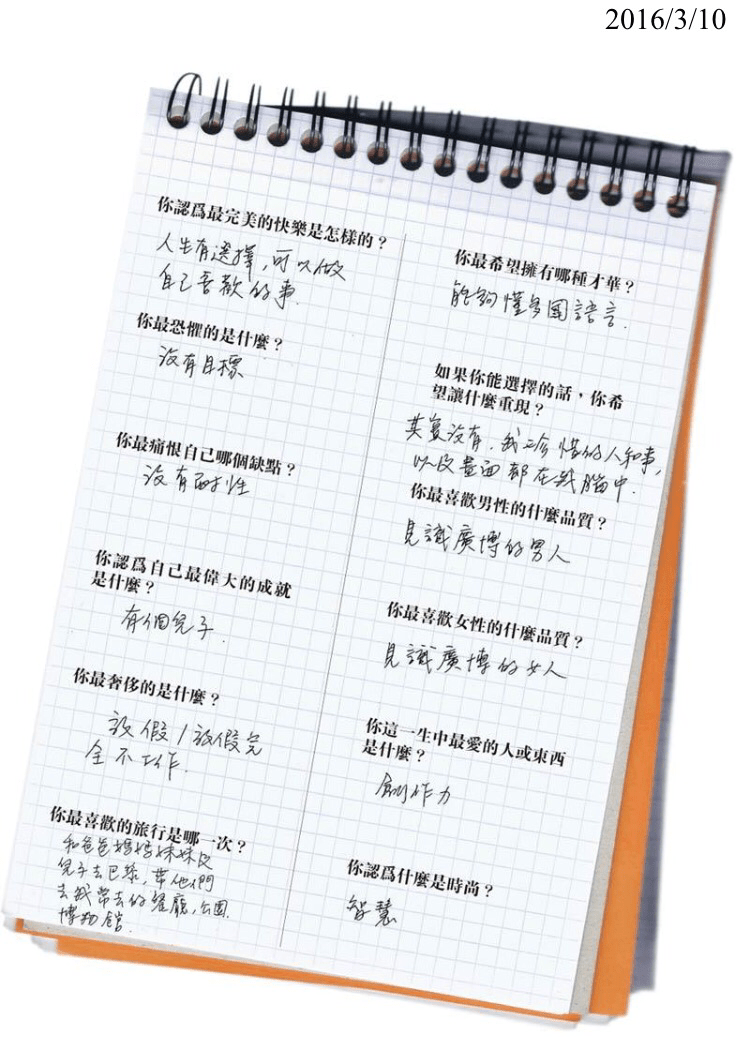 2016/3/10
你認爲最完美的快樂是怎樣的？
人生有選擇，可以做
自己喜歡的事.
你最恐懼的是什麼？
沒有目標
你最痛恨自己哪個缺點？
沒有耐性
你認爲自己最偉大的成就
是什麼？
有個兒子.
你最奢侈的是什麼？
放假/放假完
全不工作.
你最喜歡的旅行是哪一次？
和爸爸媽媽妹妹及
兒子去巴黎，帶他們
去我常去的餐廳，公園
博物館.
你最希望擁有哪種才華？
能夠懂多國語言.
如果你能選擇的話，你希
望讓什麼重現？
其實沒有，我珍惜的人和事，
以及畫面都在我腦中.
你最喜歡男性的什麼品質？
見識廣博的男人
你最喜歡女性的什麼品質？
見識廣博的女人
你這一生中最愛的人或東西
是什麼？
創作力
你認爲什麼是時尚？
智慧